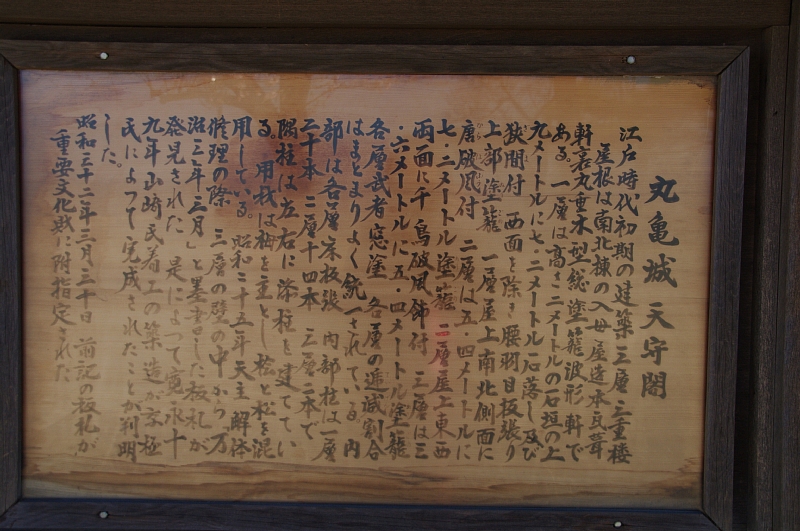 丸亀城 天守閣
江戸時代初期の建築 三層三重楼
屋根は南北棟の入母屋造本瓦葺
軒裏丸垂木型総塗籠波形軒で
ある。一層は高さ二メートルの石垣の上
九メートルに七・二メートル石落し及び
狭間付 西面を除き腰羽目板張り
上部塗籠 一層屋上南北側面に
唐破風付 二層は五・四メートルに
七・二メートル塗籠 二層屋上東西
両面に千鳥破風飾付 三層は三
・六メートルに五・四メートル塗籠
各層武者窓塗 各層の逓減割合
はまとまりよく統一されている。内
部は各層床板張 内部柱は一層
二十本 二層十四本 三層二本で
隅柱は左右に添柱を建ててい
る。用材は栂を主とし桧と松を混
用している。昭和二十五年天主解体
修理の際 三層の壁の中から「万
治三年三月」と墨書した板札が
発見された 是によって寛永十
九年山崎氏着工の築造が京極
氏によって完成されたことが判明
した。
昭和三十二年三月三十日 前記の板札が
重要文化財に附指定された